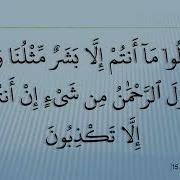 لُوا۟ مَآ أَنتُمْ إِلَّا بَشَرٌ مِّثْلُنَا وَ
زَلَ ٱلرَّحْمَٰنُ مِن شَىْءٍ إِنْ أَنتُ
إِلَّا تَكْذِبُونَ
[15